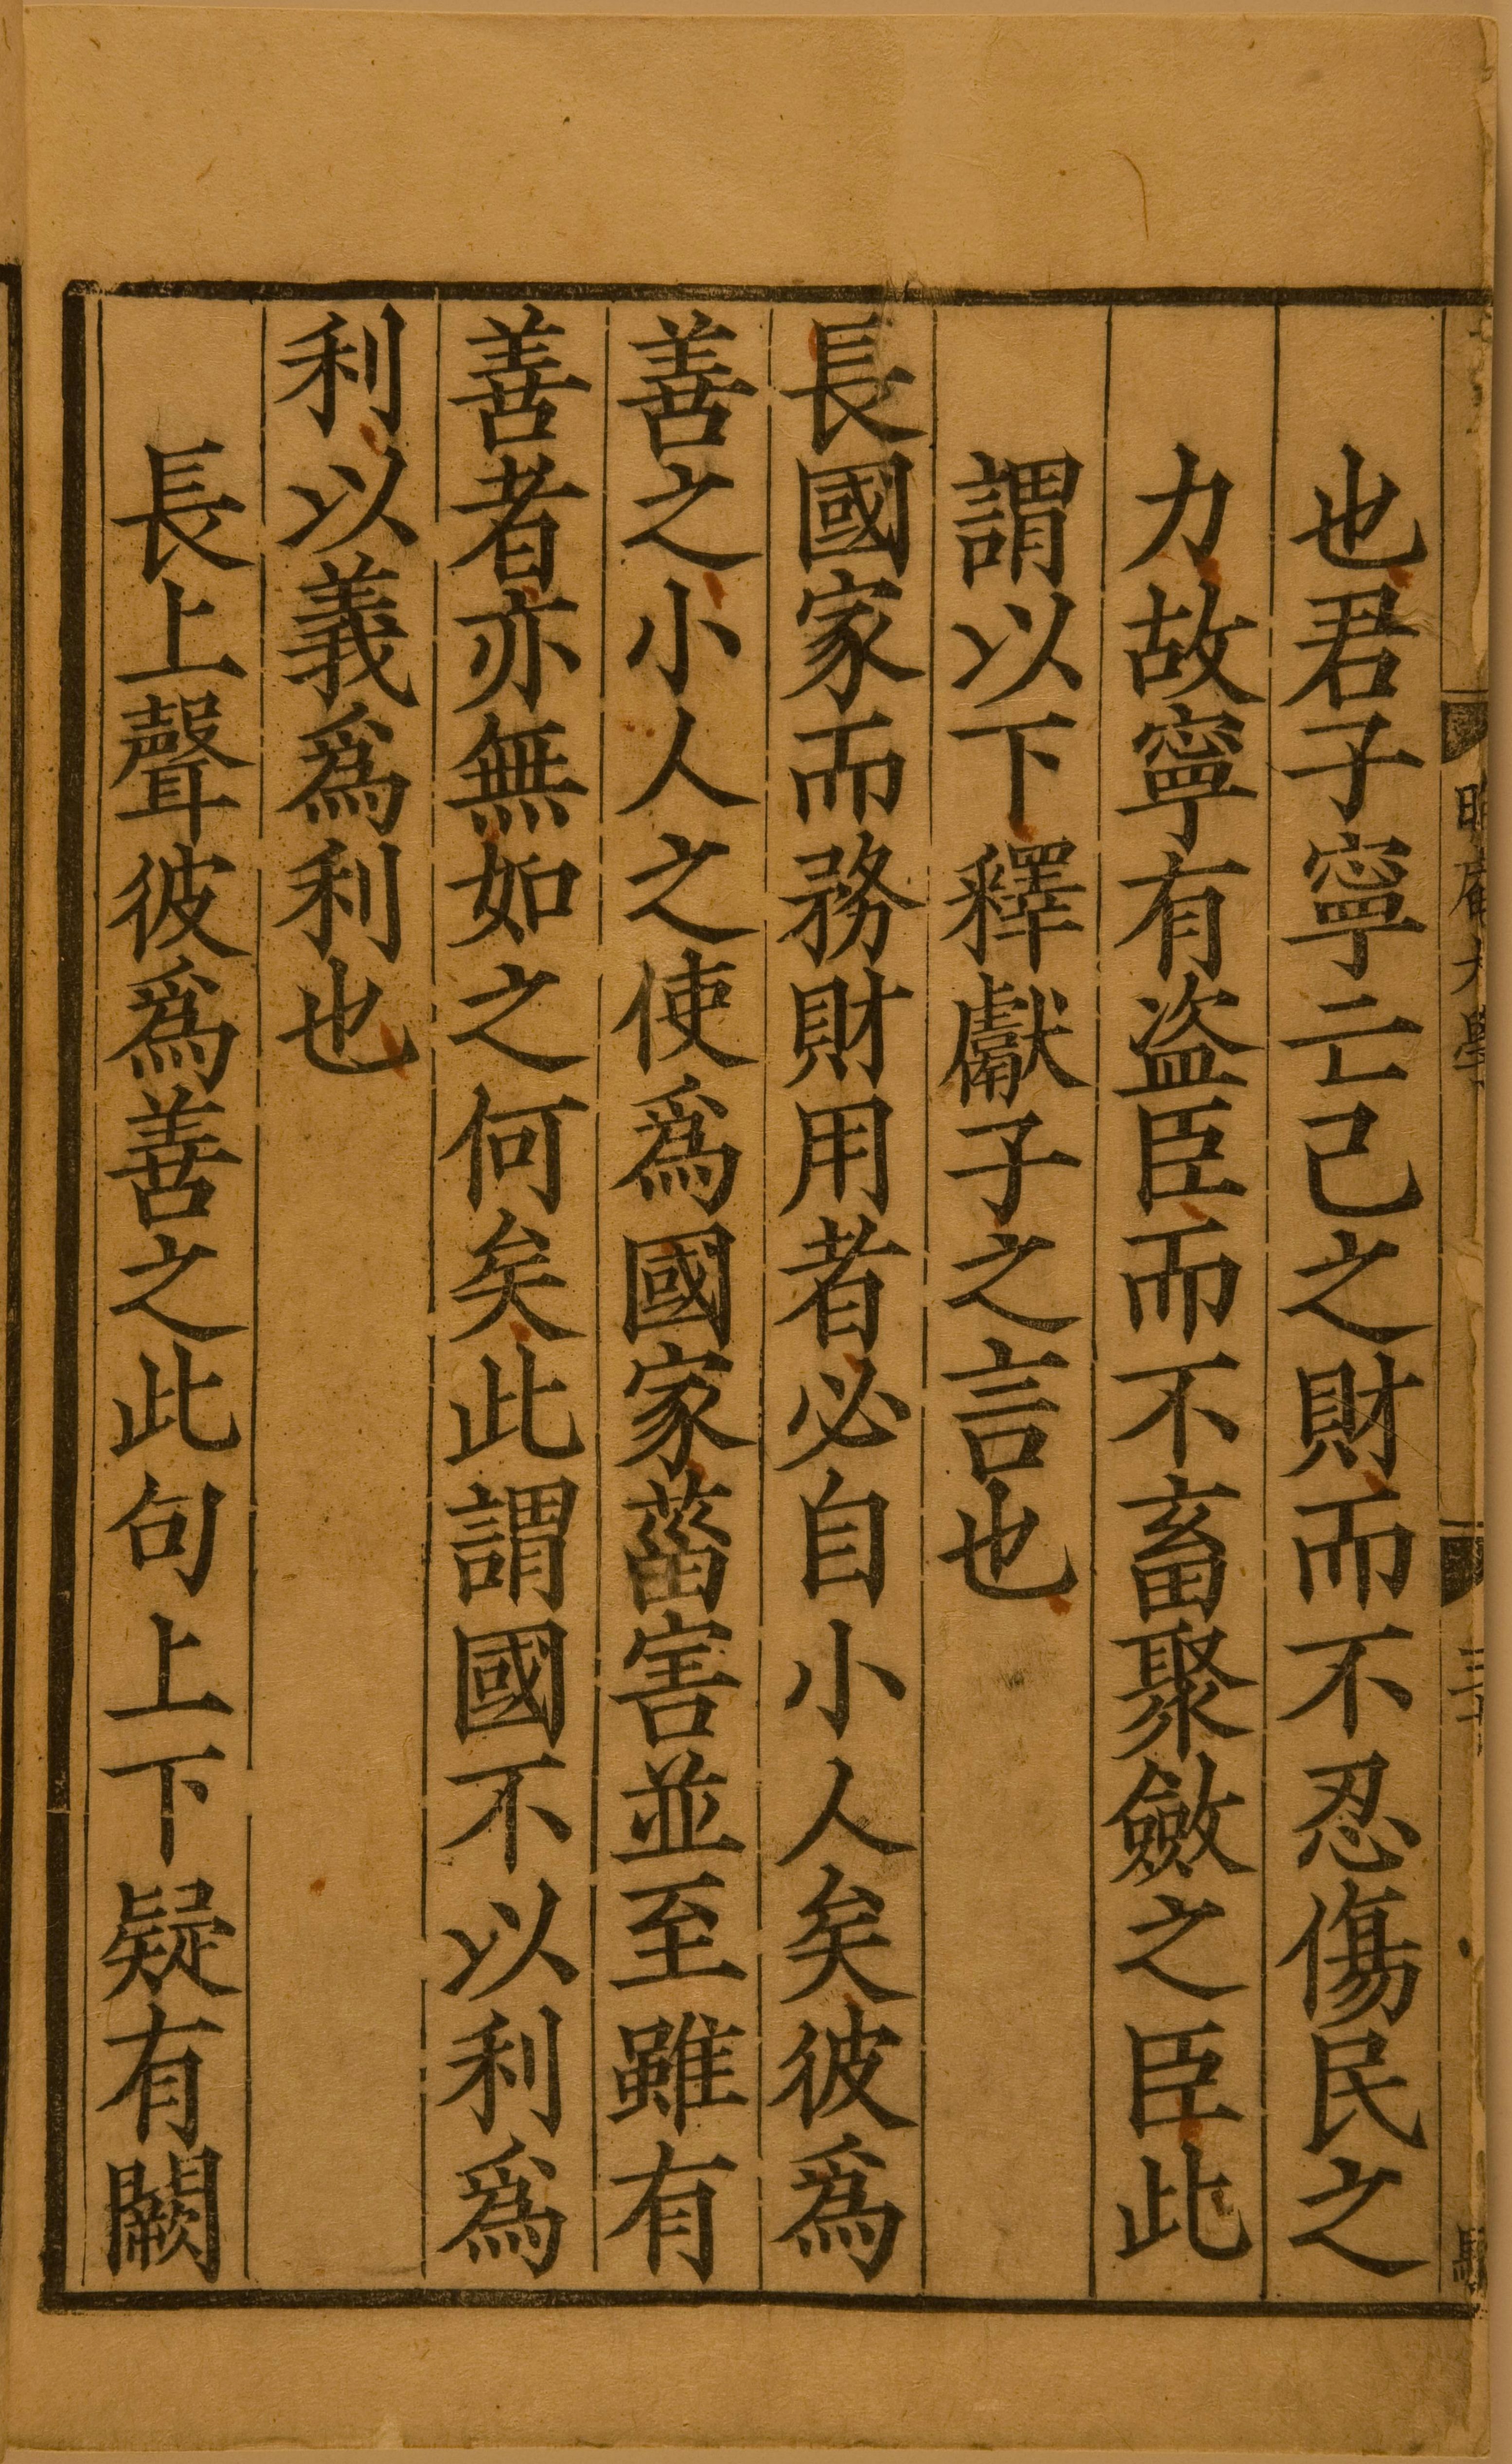 也君子寧亡己之財而不忍傷民之
力故寧有盗臣而不畜聚斂之臣此
謂以下釋獻子之言也
長國家而務財用者必自小人矣彼爲
善之小人之使爲國家菑害並至雖有
善者亦無如之何矣此謂國不以利爲
利以義爲利也
長上聲彼爲善之此句上下疑有闕